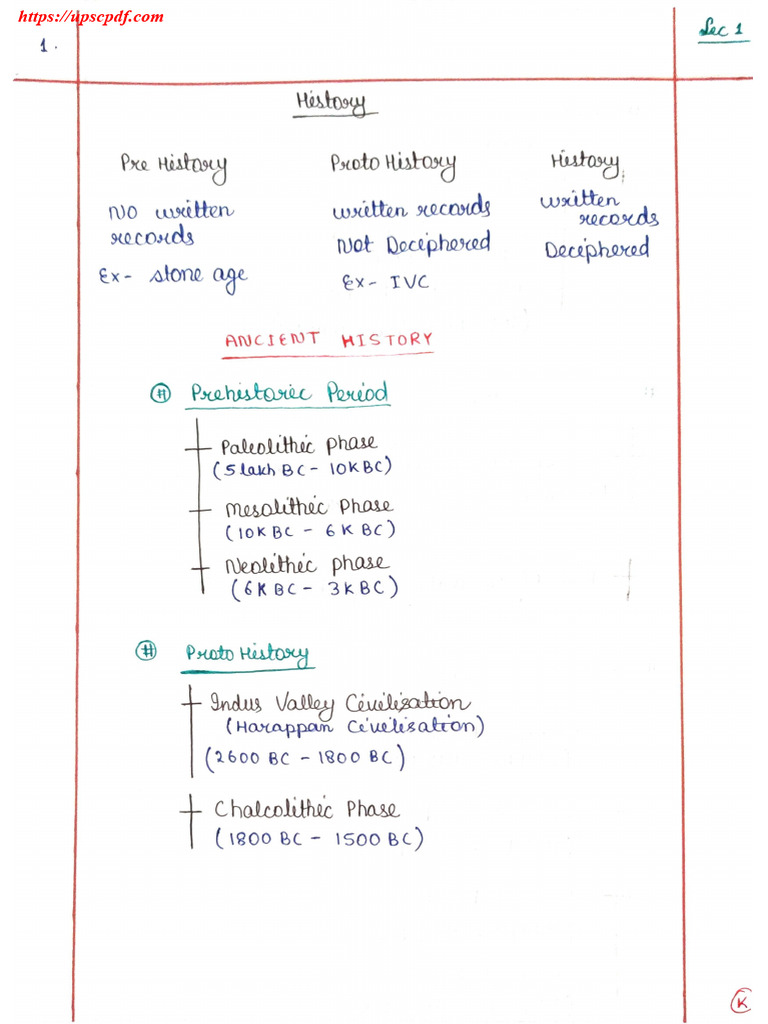 https://upscpdf.com
1.
Lec 1
History
Pre History
Proto History
History
No written
records
Ex- stone age
written records
Not Deciphered
Ex- IVC
written
records
Deciphered
ANCIENT HISTORY
# Prehistoric Period
Paleolithic phase
(5 lakh BC - 10K BC)
Mesolithic Phase
(10K BC - 6K BC)
Neolithic phase
(6K BC - 3K BC)
# Proto History
Indus Valley Civilisation
(Harappan Civilisation)
(2600 BC - 1800 BC)
Chalcolithic Phase
(1800 BC - 1500 BC)
K